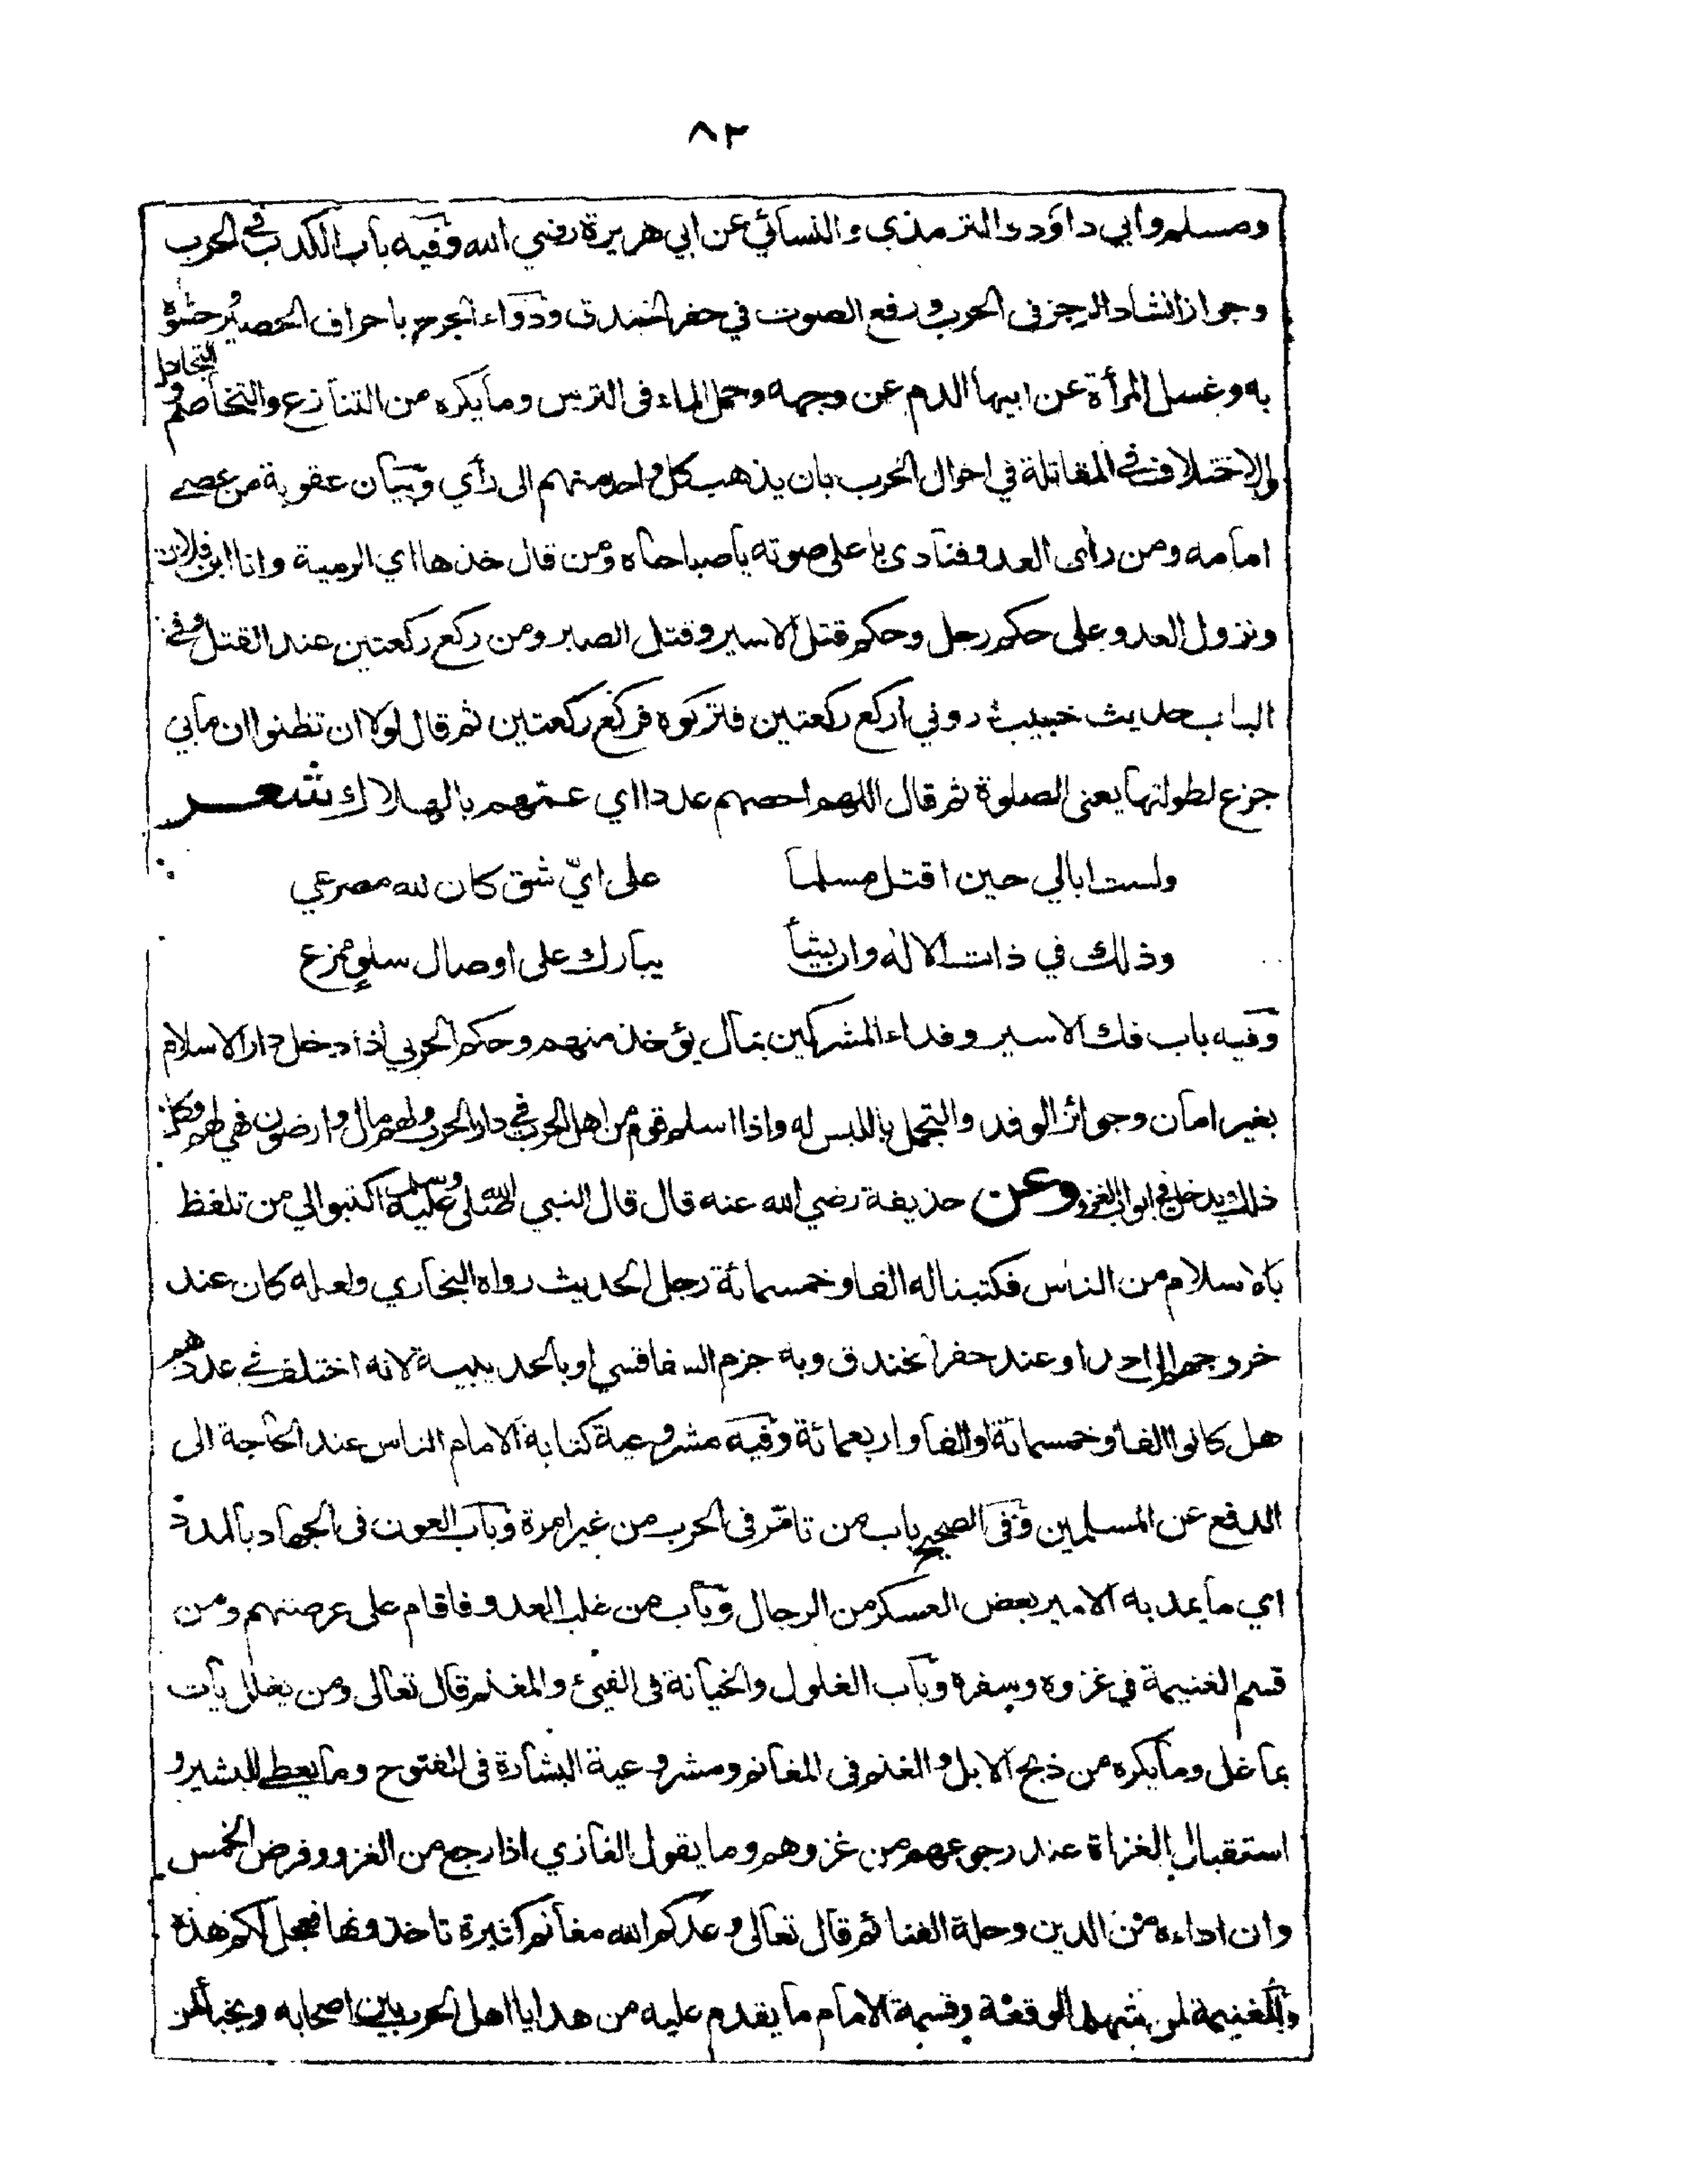 ٨٢
ومسلم وابي داود والترمذي والنسائي عن ابي هريرة رضي الله وفيه باب الكذب في الحرب
وجواز انشاد الرجز في الحرب ورفع الصوت في حفر الخندق ودواء الجرح باحراق الحصير حشوة
به وغسل المرأة عن ابيها الدم عن وجهه وحمل الماء في الترس وما يكره من التنازع والتخاصم و التجادل
والاختلاف في المقاتلة في احوال الحرب بان يذهب كل واحد منهم الى رأي وبيان عقوبة من عصى
امامه ومن رأى العدو فنادى باعلى صوته يا صباحاه ومن قال خذها اي الرمية وانا ابن فلان
ونزول العدو على حكم رجل وحكم قتل الاسير وقتل الصبر ومن ركع ركعتين عند القتل وفي
الباب حديث خبيب ذروني اركع ركعتين فتركوه فركع ركعتين ثم قال لولا ان تظنوا ان ما بي
جزع لطولتها يعني الصلوة ثم قال اللهم احصهم عددا اي عمهم بالهلاك شعر
ولست ابالي حين اقتل مسلما على ايّ شق كان لله مصرعي
وذلك في ذات الاله وان يشأ يبارك على اوصال سلو ممزع
وفيه باب فك الاسير وفداء المشركين بمال يؤخذ منهم وحكم الحربي اذا دخل دار الاسلام
بغير امان وجوائز الوفد والتجمل باللبس له واذا اسلم قوم من اهل الحرب في دار الحرب ولهم مال وارضون فهي لهم وكل
ذلك يدخل في ابواب الغزو وعن حذيفة رضي الله عنه قال قال النبي صلى الله عليه وسلم اكتبوا لي من تلفظ
بالاسلام من الناس فكتبنا له الفا وخمسمائة رجل الحديث رواه البخاري ولعله كان عند
خروجهم الى احد او عند حفر الخندق وبه جزم السفاقسي او بالحديبية لانه اختلف في عددهم
هل كانوا الفا وخمسمائة او الفا واربعمائة وفيه مشروعية كتابة الامام الناس عند الحاجة الى
الدفع عن المسلمين وفي الصحيح باب من تأمّر في الحرب من غير امرة وباب العون في الجهاد بالمدد
اي ما يمد به الامير بعض العسكر من الرجال وباب من غلب العدو فاقام على عرصتهم ومن
قسم الغنيمة في غزوه وسفره وباب الغلول والخيانة في الفيئ والمغنم قال تعالى ومن يغلل يأت
بما غل وما يكره من ذبح الابل والغنم في المغانم ومشروعية البشارة في الفتوح وما يعطى للبشير و
استقبال الغزاة عند رجوعهم من غزوهم وما يقول الغازي اذا رجع من الغزو وفرض الخمس
وان اداءه من الدين وحلة الغنائم قال تعالى وعدكم الله مغانم كثيرة تاخذونها فعجل لكم هذه
والغنيمة لمن شهد الوقعة وقسمة الامام ما يقدم عليه من هدايا اهل الحرب بين اصحابه ويخبأ لمن